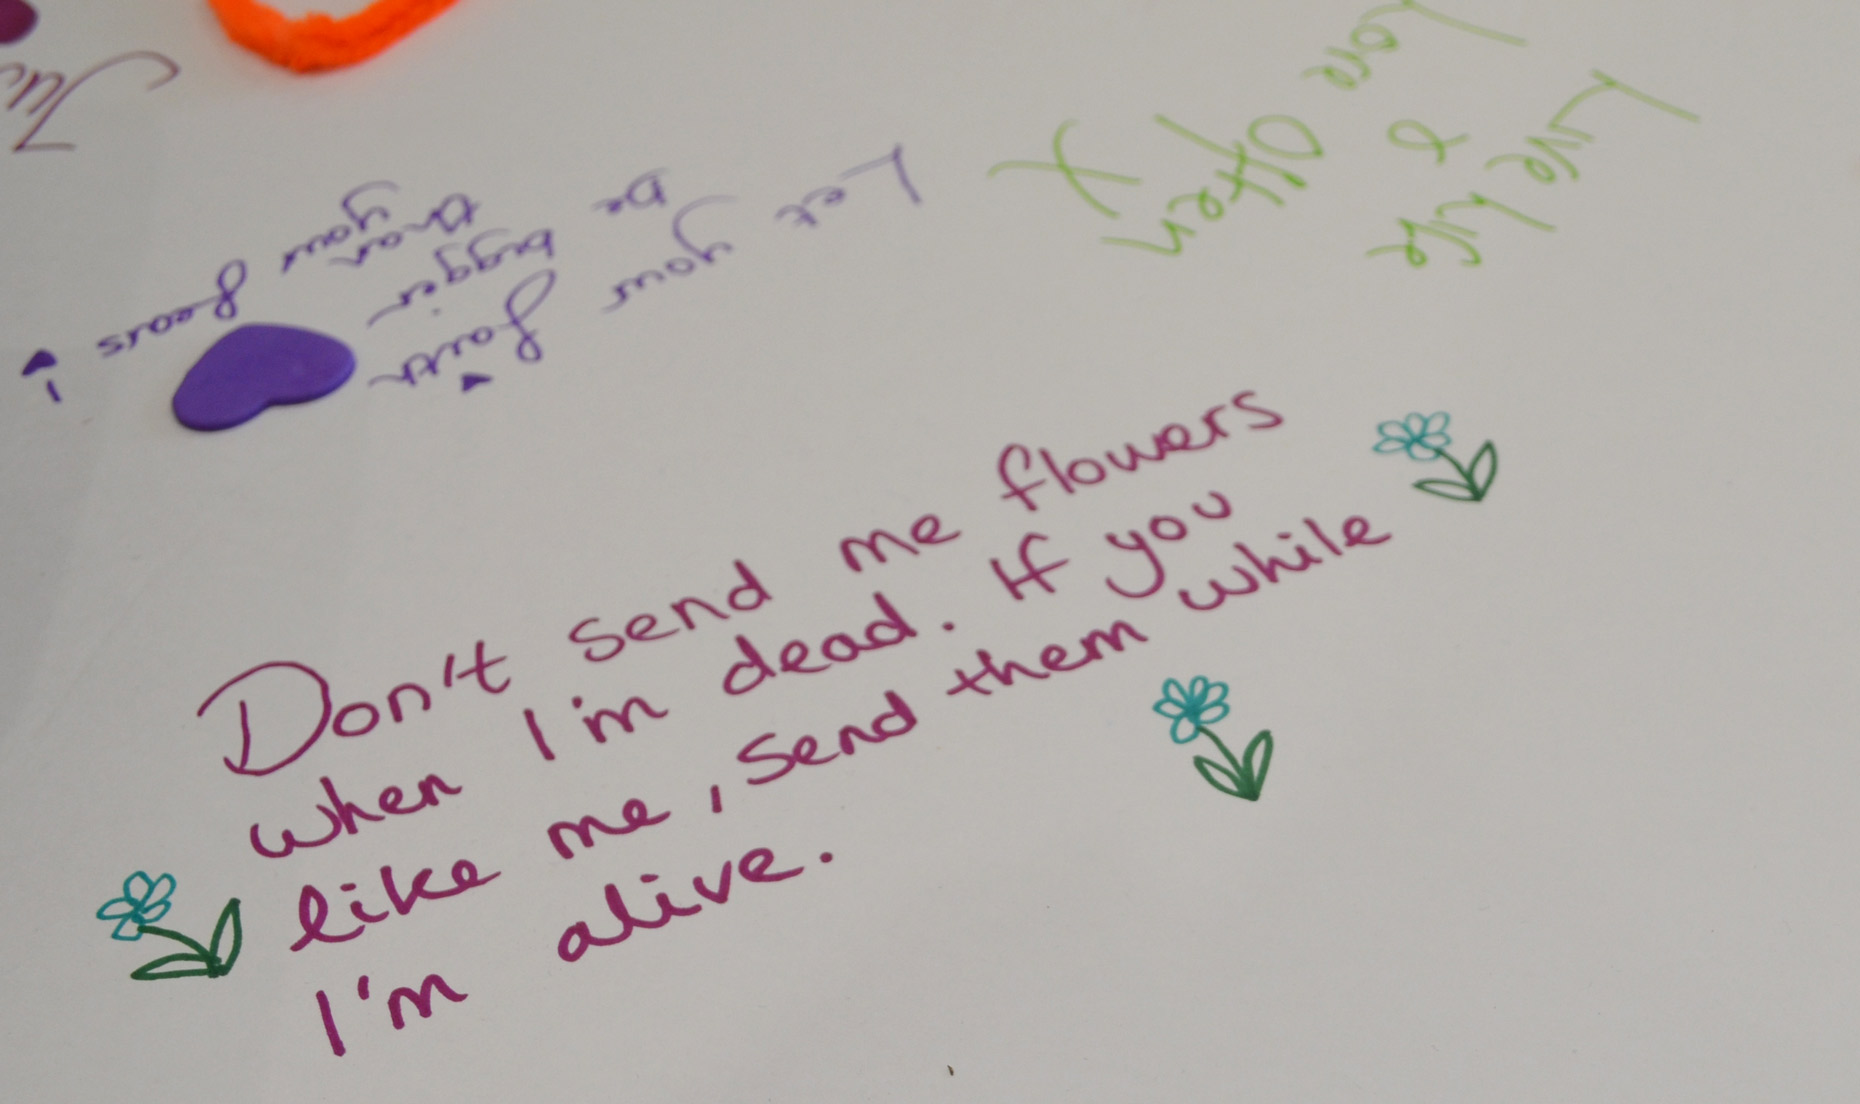 Don't send me flowers
when I'm dead. If you
like me, send them while
I'm alive.
Let your faith
be bigger
than your fears
Live life
&
Love Often
X